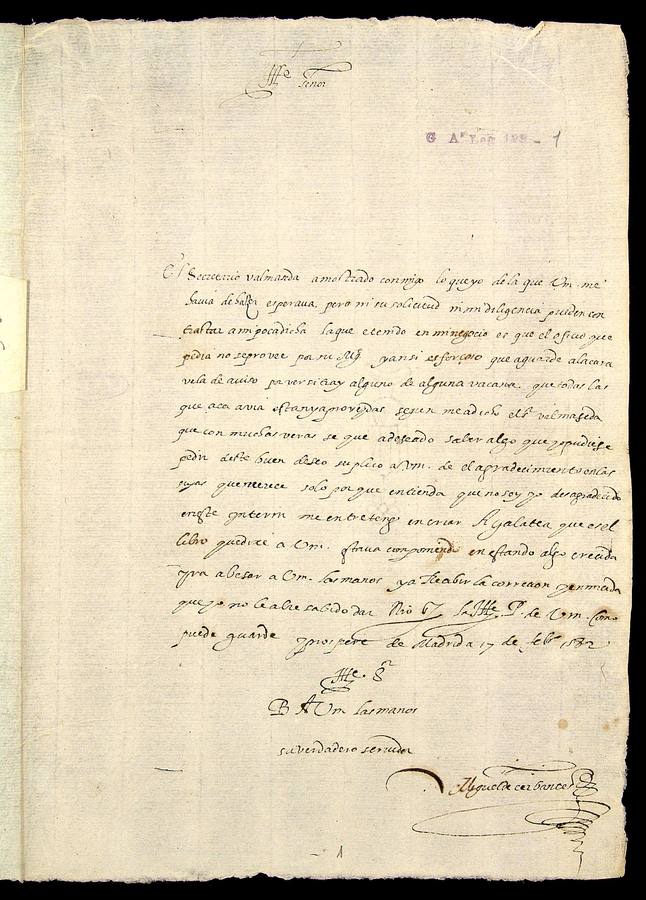 Ille Señor
G Aª Leg 123 - 1
El Secretario valmaseda a mostrado conmigo lo que yo de la que Vm. me
havia de hazer esperava, pero ni su solicitud ni mi diligencia pueden con
trastar a mi poca dicha la que e tenido en mi negocio es que el oficio que
pedia no se provee por su Mgd y ansi es forçoso que aguarde a la cara
vela de aviso por ver si tray alguno de alguna vacante que todas las
que aca avia estan ya proveydas segun me a dicho el sr valmaseda
que con muchas veras se que a deseado saber algo que yo pudiese
pedir deste buen deseo suplico a Vm. de el agradecimiento en las
suyas que merece solo por que entienda que no soy yo desagradecido
en este ynterin me entretengo en criar A galatea que es el
libro que dixe a Vm. estava componiendo en estando algo crecida
yra a besar a Vm. las manos y a Recebir la correcion y enmienda
que yo no le abre sabido dar Nro Sr la Ille P. de Vm. como
puede guarde y prospere de Madrid a 17 de febro 1582
Ille Sr
B A Vm las manos
su verdadero servidor
Miguel de cerbantes
1